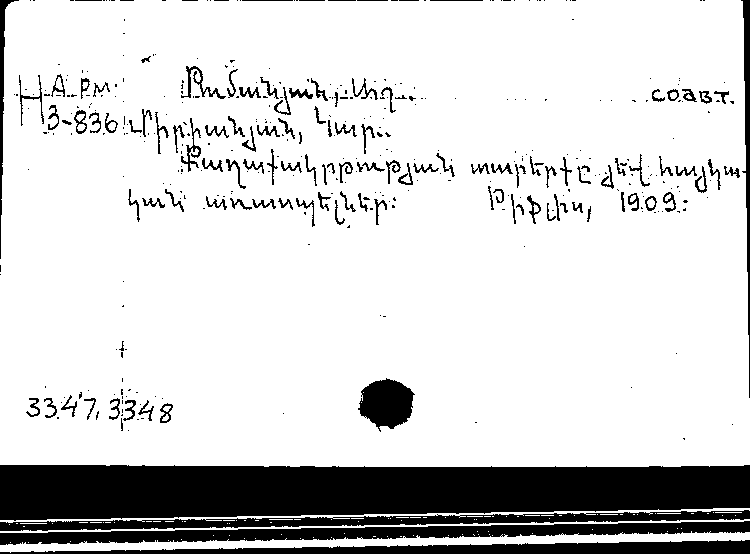 А рм. Թամանյան, Աղ. соавт.
Н 3-836 Միրիանյան, Կար.
Քաղաքակրթության տարերքը մեջ հայկա-
կան առասպելներ: Թիֆլիս, 1909:
3347, 3348